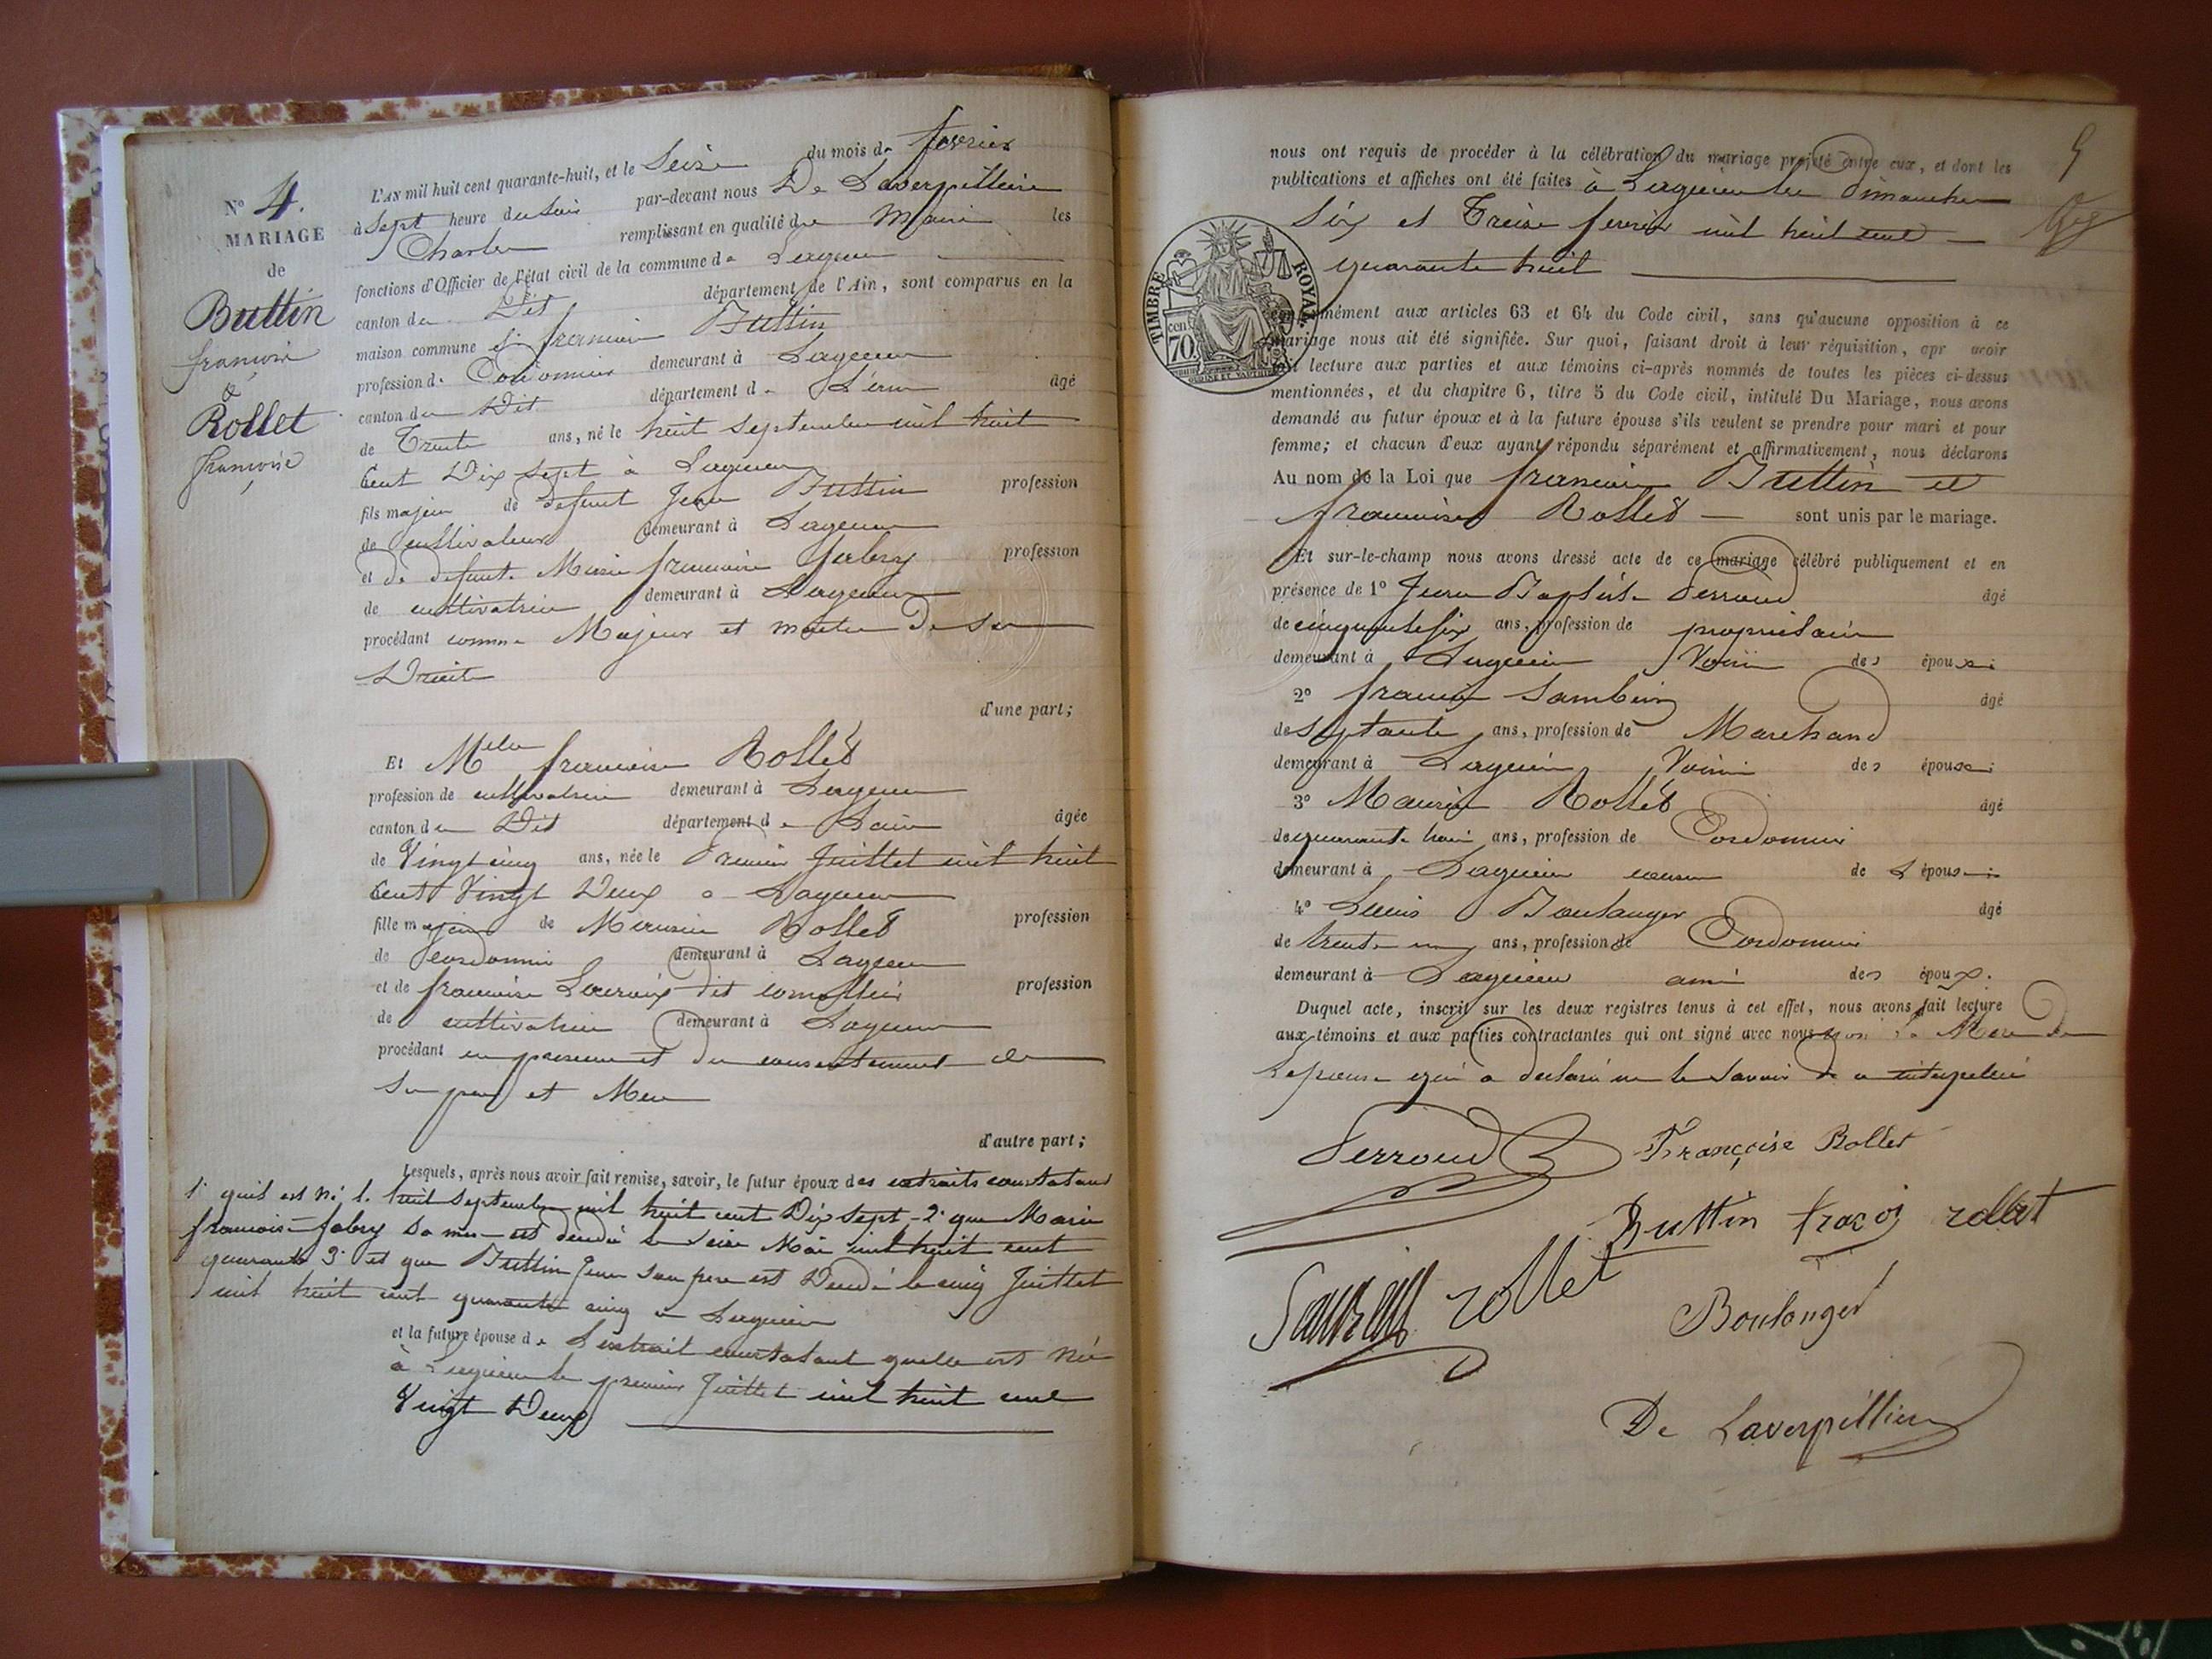 N° 4.
MARIAGE
de
Buttin
françois
&
Rollet
françoise
L'AN mil huit cent quarante-huit, et le Seize du mois de fevrier
à Sept heure du soir par-devant nous De Laverpilliere
Charles remplissant en qualité de Maire les
fonctions d'Officier de l'état civil de la commune de Lagnieu
canton du Dit département de l'Ain, sont comparus en la
maison commune Sr francois Buttin
profession de Cordonnier demeurant à Lagnieu
canton du Dit département de L'ain âgé
de Trente ans, né le huit septembre mil huit
Cent Dix sept à Lagnieu
fils majeur de defunt Jean Buttin profession
de cultivateur demeurant à Lagnieu
et de defunte Marie francoise fabry profession
de cultivatrice demeurant à Lagnieu
procédant comme Majeur et maitre de ses
Droits
d'une part;
Et Melle francoise Rollet
profession de cultivatrice demeurant à Lagnieu
canton du Dit département de Lain âgée
de Vingt cinq ans, née le Premier Juillet mil huit
Cent Vingt Deux a Lagnieu
fille majeure de Maurice Rollet profession
de Cordonnier demeurant à Lagnieu
et de francoise dit profession
de cultivatrice demeurant à Lagnieu
procédant en presence et du consentement de
Ses pere et Mere
d'autre part;
Lesquels, après nous avoir fait remise, savoir, le futur époux des extraits constatant
1° quil est né le huit septembre mil huit cent Dix sept - 2° que Marie
francoise fabry sa mere est decedée le seize Mai mil huit cent
quarante 3° et que Buttin Jean son pere est Decedé le cinq Juillet
mil huit cent quarante cinq a Lagnieu
et la future épouse de L'extrait constatant quelle est née
à Lagnieu le premier Juillet mil huit cent
Vingt Deux
nous ont requis de procéder à la célébration du mariage projeté entre eux, et dont les
publications et affiches ont été faites à Lagnieu les dimanches
Six et Treize fevrier mil huit cent
quarante huit
TIMBRE ROYAL
70
conformément aux articles 63 et 64 du Code civil, sans qu'aucune opposition à ce
mariage nous ait été signifiée. Sur quoi, faisant droit à leur réquisition, apr avoir
fait lecture aux parties et aux témoins ci-après nommés de toutes les pièces ci-dessus
mentionnées, et du chapitre 6, titre 5 du Code civil, intitulé Du Mariage, nous avons
demandé au futur époux et à la future épouse s'ils veulent se prendre pour mari et pour
femme; et chacun d'eux ayant répondu séparément et affirmativement, nous déclarons
Au nom de la Loi que francois Buttin et
francoise Rollet sont unis par le mariage.
Et sur-le-champ nous avons dressé acte de ce mariage célébré publiquement et en
présence de 1° Jean Baptiste Perroud âgé
de cinquante six ans, profession de proprietaire
demeurant à Lagnieu Voisin des époux;
2° francois âgé
de septante ans, profession de Marchand
demeurant à Lagnieu Voisin des époux;
3° Maurice Rollet âgé
de quarante trois ans, profession de Cordonnier
demeurant à Lagnieu cousin de L'épouse;
4° Louis Boulanger âgé
de trente un ans, profession de Cordonnier
demeurant à Lagnieu ami des époux.
Duquel acte, inscrit sur les deux registres tenus à cet effet, nous avons fait lecture
aux témoins et aux parties contractantes qui ont signé avec nous non la Mere de
L'epouse qui a declaré ne le savoir de ce interpellée
Perroud Françoise Rollet
Buttin fracoi rollet
rollet
Boulanger
De Laverpilliere